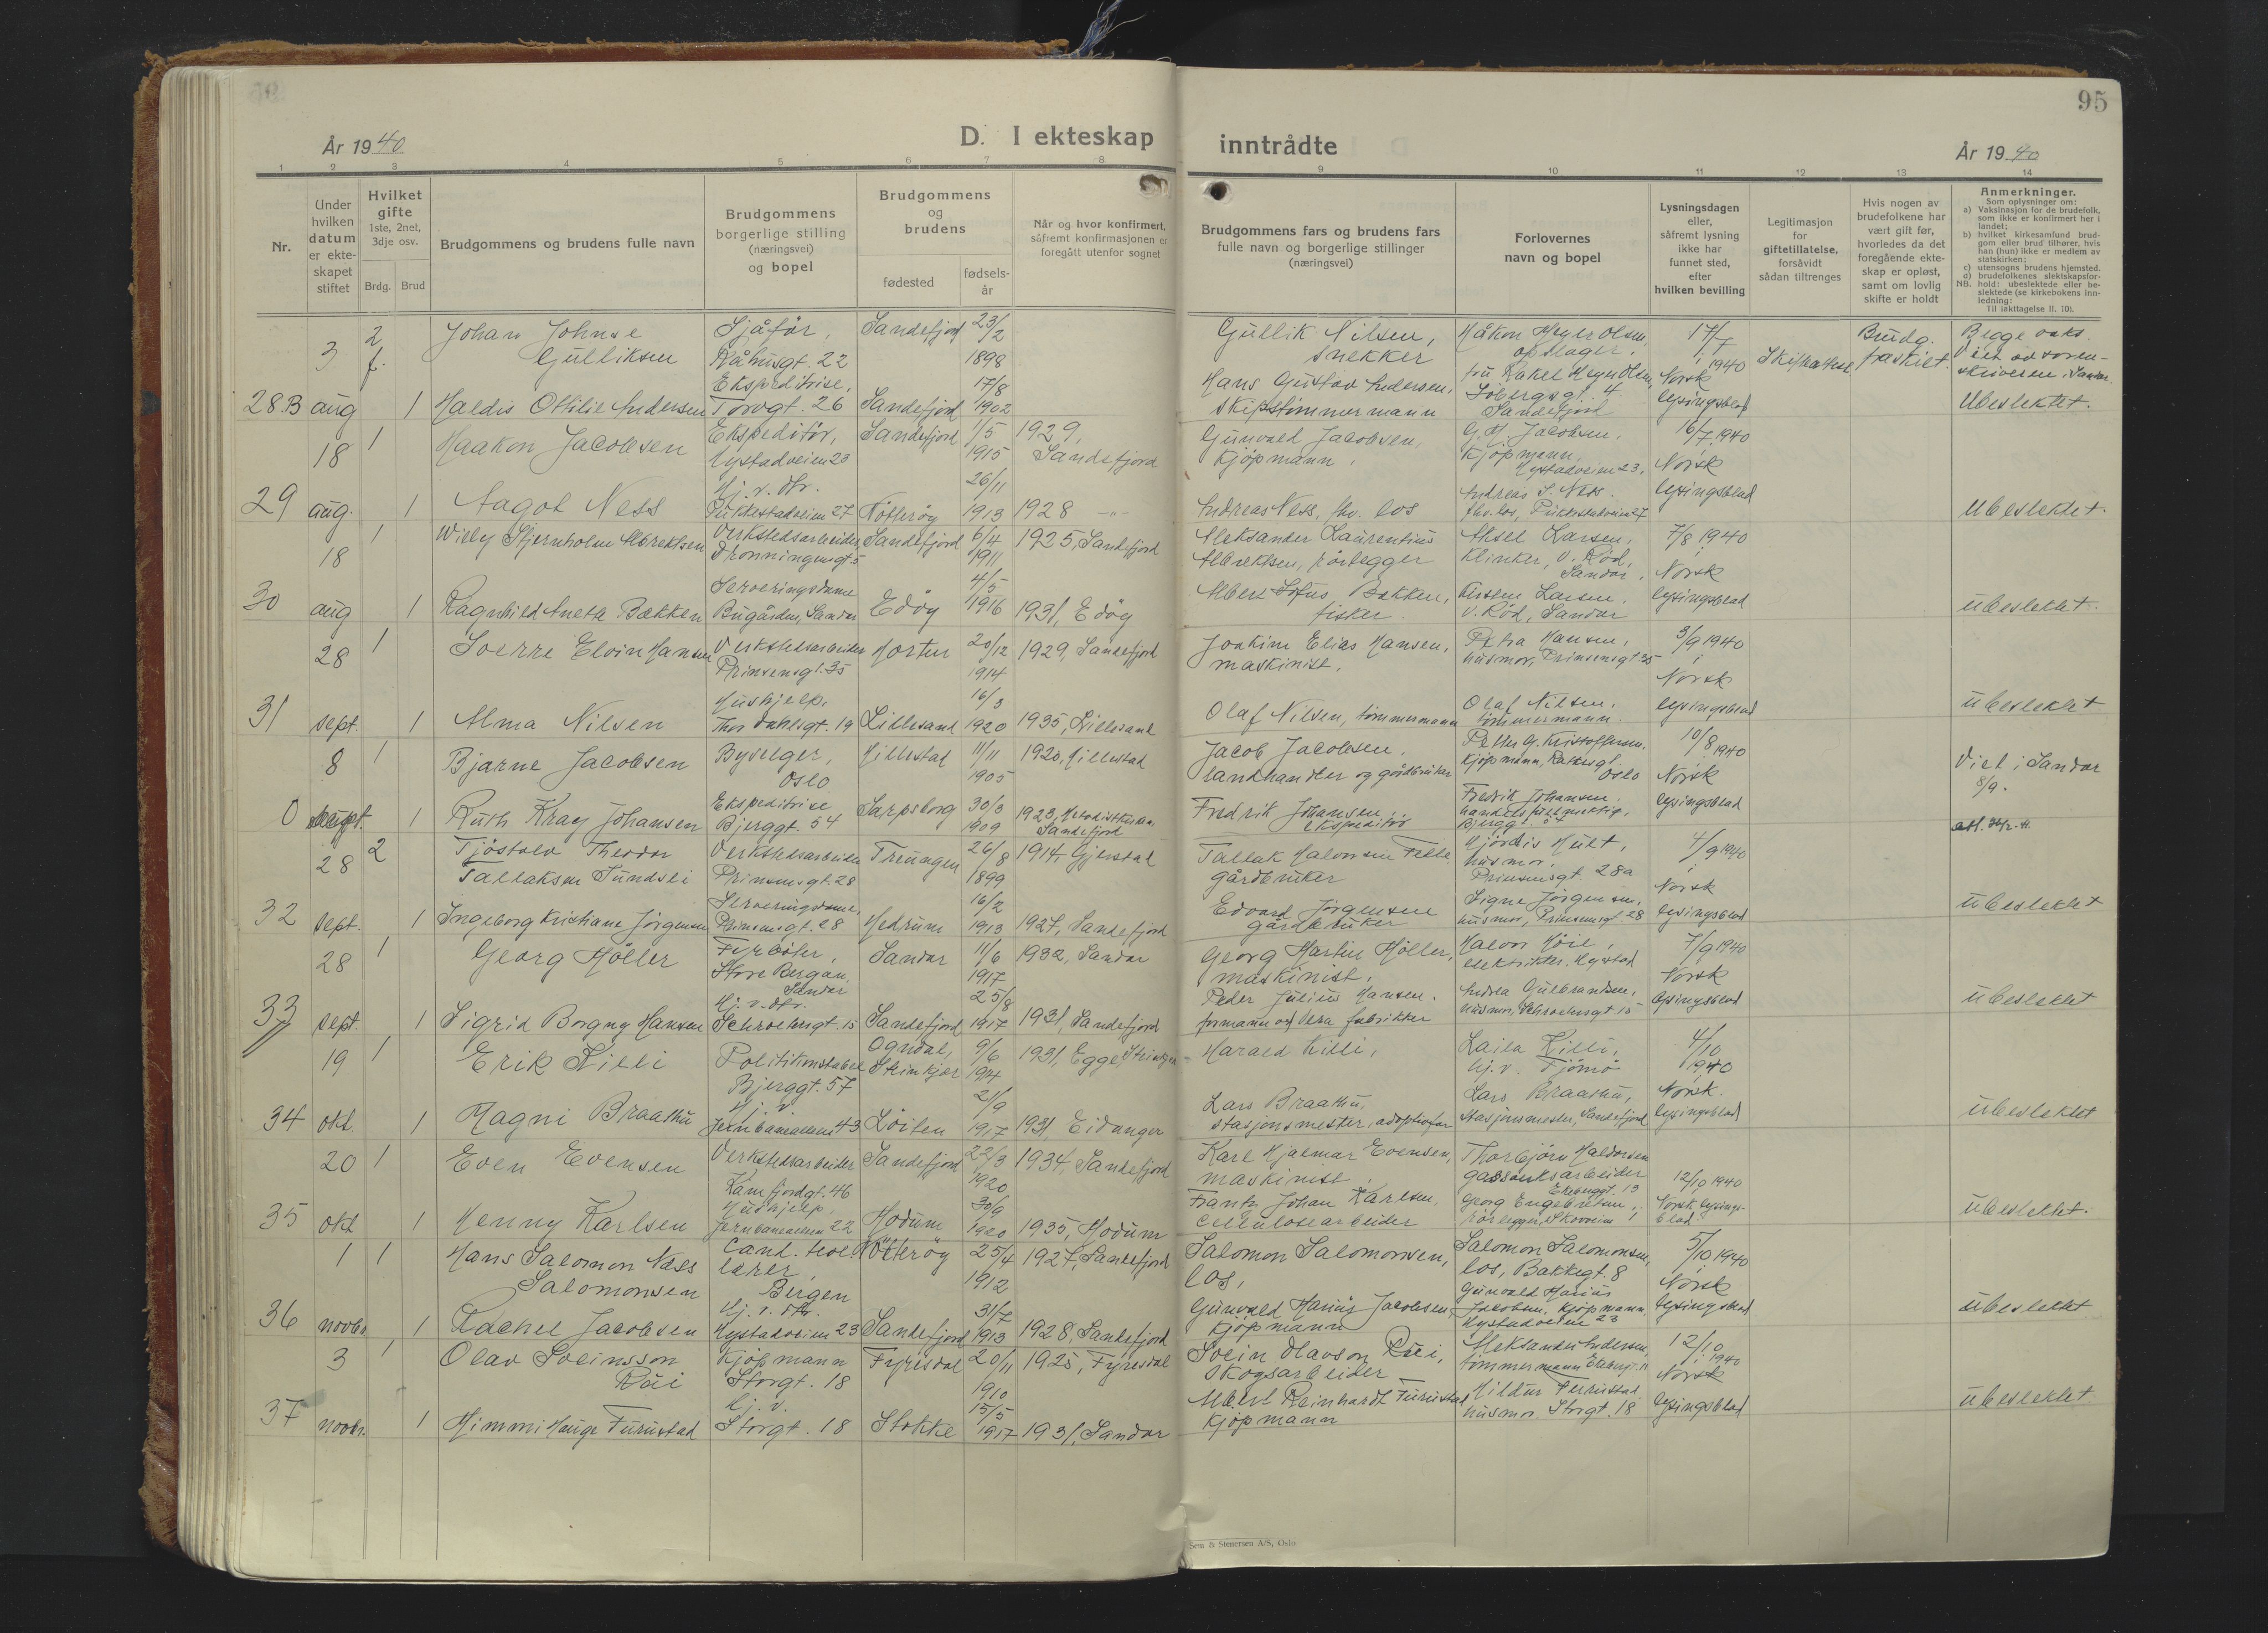 95
År 1940
D. I ekteskap
inntrådte
År 1940
1 2 3 4 5 6 7 8 9 10 11 12 13 14
Nr.
Under
hvilken
datum
er ekte-
skapet
stiftet
Hvilket
gifte
1ste, 2net,
3dje osv.
Brdg. Brud
Brudgommens og brudens fulle navn
Brudgommens
borgerlige stilling
(næringsvei)
og bopel
Brudgommens
og
brudens
fødested
fødsels-
år
Når og hvor konfirmert,
såfremt konfirmasjonen er
foregått utenfor sognet
Brudgommens fars og brudens fars
fulle navn og borgerlige stillinger
(næringsvei)
Forlovernes
navn og bopel
Lysningsdagen
eller,
såfremt lysning
ikke har
funnet sted,
efter
hvilken bevilling
Legitimasjon
for
giftetillatelse,
forsåvidt
sådan tiltrenges
Hvis nogen av
brudefolkene har
vært gift før,
hvorledes da det
foregående ekte-
skap er opløst,
samt om lovlig
skifte er holdt
Anmerkninger.
Som oplysninger om:
a) Vaksinasjon for de brudefolk,
som ikke er konfirmert her i
landet;
b) hvilket kirkesamfund brud-
gom eller brud tilhører, hvis
han (hun) ikke er medlem av
statskirken;
c) utensogns brudens hjemsted.
d) brudefolkenes slektskapsfor-
hold: ubeslektede eller be-
slektede (se kirkebokens inn-
ledning:
NB.
Til iakttagelse II. 10).
28.B
3
aug
2
f.
1
Johan Johnse
Gulliksen
Sjåfør,
Råhusgt. 22
Sandefjord
23/2
1898
Gullik Nilsen,
snekker
Håkon Meyer Olsen,
opslager,
17/7
1940
Skifteattest
Brudg.
fraskilt.
Begge vaks.
Viet av soren-
skriveren i Sandar
Haldis Ottilie Andersen
Ekspeditrise,
Torvgt. 26
Sandefjord
17/8
1902
Hans Gustav Andersen,
skipstømmermann
fru Rakel Meyer Olsen,
Sandefjord
Norsk
lysingsblad
Ubeslektet.
29
18
aug.
1
1
Haakon Jacobsen
Ekspeditør,
Hystadveien 23
Sandefjord
1/5
1915
1929,
Sandefjord
Gunvald Jacobsen,
Kjøpmann,
G. M. Jacobsen,
Kjøpmann,
Hystadveien 23,
16/7 1940
i
Norsk
lysingsblad
Aagot Ness
Hj. v. dtr.
Pukkestadveien 27
Nøtterøy
26/11
1913
1928 -"-
Andreas Ness, fhv. los
Andreas S. Ness.
fhv. los, Pukkestadveien 27
Ubeslektet.
30
18
aug
1
1
Willy Stjernholm Albrektsen
Verkstedsarbeider
Dronningensgt. 5
Sandefjord
6/4
1911
1925, Sandefjord
Aleksander Laurentius
Albrektsen, rørlegger
Aksel Larsen,
Klinker, V. Rød,
Sandar,
7/8 1940
i
Norsk
lysingsblad
Ragnhild Aneta Bækken
Serveringsdame
Bugården, Sandar
Edøy
4/5
1916
1931, Edøy
fisker
Kirsten Larsen.
V. Rød, Sandar
ubeslektet.
31
28
sept.
1
1
Sverre Elvin Hansen
Verkstedsarbeider
Prinsensgt. 35
Horten
20/12
1914
1929, Sandefjord
Joakim Elias Hansen,
maskinist.
Petra Hansen,
husmor, Prinsensgt 35
3/9 1940
i
Norsk
lysingsblad
Alma Nilsen
Hushjelp.
Thor Dahlsgt. 19
Lillesand
16/3
1920
1935, Lillesand
Olaf Nilsen, tømmermann
Olaf Nilsen.
tømmermann.
ubeslektet
0
8
sept.
1
1
Bjarne Jacobsen
Byselger,
Oslo
Hillestad
11/11
1905
1920, Hillestad
Jacob Jacobsen.
landhandler og gårdbruker
Petter G. Kristoffersen.
Kjøpmann,
Oslo
10/8 1940
i
Norsk
lysingsblad
Viet i Sandar
8/9.
Ruth Kray Johansen
Ekspeditrise
Bjerggt. 54
Sarpsborg
30/3
1909
1923, Metodistkirken,
Sandefjord
Fredrik Johansen
ekspeditør
Fredrik Johansen.
32
28
sept.
2
1
Tjøstolv Theodor
Tallaksen Sundsli
Verkstedsarbeider
Prinsensgt. 28
Treungen
26/8
1899
1914, Gjerstad
gårdbruker
Hjørdis Hult,
husmor,
Prinsensgt 28a
4/9 1940
i
Norsk
lysingsblad
Ingeborg Kristiane Jørgensen
Serveringsdame,
Prinsensgt. 28
Hedrum
16/2
1913
1927, Sandefjord
Edvard Jørgensen
gårdbruker
Signe Jørgensen,
husmor, Prinsensgt 28
ubeslektet
33
28
sept.
1
1
Georg Høller
Fyrbøter,
Store Bergan,
Sandar
Sandar
11/6
1917
1932, Sandar
Georg Martin Høller,
maskinist,
Halvor Høie,
elektriker, Hystad
7/9 1940
Norsk
lysingsblad
Sigrid Borgny Hansen
Hj. v. dtr.
Schrødersgt. 15
Sandefjord
25/8
1917
1931, Sandefjord
Peder Julius Hansen.
formann ved Vera fabrikker
Andrea Gulbrandsen,
husmor, Schrødersgt 15
ubeslektet
34
19
okt.
1
1
Erik Lilli
Politikonstabel
Bjerggt. 57
Ogndal,
Steinkjær
9/6
1914
1931, Egge, Steinkjær
Harald Lilli,
Laila Lilli,
hj. v. Tjømø
4/10
1940
Norsk.
lysingsblad
Magni Braathu
Hj. v.
Jernbanealleen 43
Løiten
21/9
1917
1931, Eidanger
Lars Braathu,
stasjonsmester, adoptivfar
Lars Braathu,
stasjonsmester, Sandefjord
ubeslektet
35
20
okt
1
1
Even Evensen
Verkstedsarbeider
Lamfjordgt. 46
Sandefjord
22/3
1920
1934, Sandefjord
Karl Hjalmar Evensen,
maskinist
Thorbjørn Haldorsen
gassverksarbeider
12/10 1940
i
Norsk lysings-
blad
Henny Karlsen
Hushjelp,
Jernbanealleen 22
Modum
30/9
1920
1935, Modum
Frantz Johan Karlsen.
cellulosearbeider
Georg Engebretsen,
rørlegger,
ubeslektet.
36
1
novbr
1
1
Hans Salomon Næss
Salomonsen
Cand. teol
lærer,
Bergen
Nøtterøy
25/4
1912
1927, Sandefjord
Salomon Salomonsen,
los,
Salomon Salomonsen,
los, Bakkegt. 8
5/10 1940
i
Norsk
lysingsblad
Rachel Jacobsen
Hj. v. dtr.
Hystadveien 23
Sandefjord
31/7
1913
1928, Sandefjord
Gunvald Marius Jacobsen,
Kjøpmann
Gunvald Marius
Jacobsen, Kjøpmann,
Hystadveien 23
ubeslektet
37
3
novbr.
1
1
Olav Sveinsson
Rui
Kjøpmann
Storgt. 18
Fyresdal
20/11
1910
1925, Fyresdal
Svein Olavson Rui,
Skogsarbeider
Aleksander Andersen,
tømmermann
12/10
1940
i
Norsk
lysingsblad
Himmi Hauge Furustad
hj. v.
Storgt. 18
Stokke
15/5
1917
1931, Sandar
Albert Reinhardt Furustad
Kjøpmann
Hildur Furustad.
husmor, Storgt. 18
ubeslektet
Sem & Stenersen A/S, Oslo